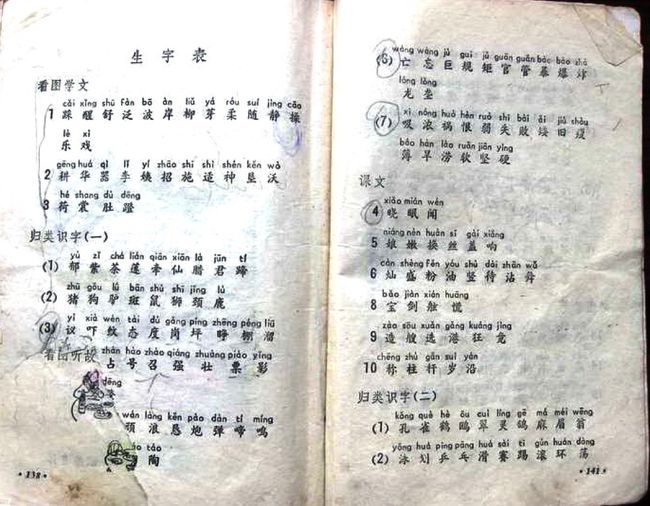 生字表
看图学文
cǎi xǐng shū fàn bō àn liǔ yá róu suí jìng cāo
1 踩 醒 舒 泛 波 岸 柳 芽 柔 随 静 操
lè xì
乐 戏
gēng huá qì lǐ yí zhāo shī shì shén kěn wò
2 耕 华 器 李 姨 招 施 适 神 垦 沃
hé shang dù dēng
3 荷 裳 肚 蹬
归类识字(一)
yù zǐ chá lián qiān xiān là jūn tí
(1) 郁 紫 茶 莲 牵 仙 腊 君 蹄
zhū gǒu lǘ bān shǔ shī jǐng lù
(2) 猪 狗 驴 斑 鼠 狮 颈 鹿
yì xià wén tài dù gǎng píng zhēng péng liū
(3) 议 吓 纹 态 度 岗 坪 睁 棚 溜
看图听故
zhān hào zhào qiáng zhuàng piào yǐng
占 号 召 强 壮 票 影
dēng
wán láng kěn pào dàn tí míng
顽 浪 恳 炮 弹 啼 鸣
táo
陶
·138·
wáng wàng jù guī jǔ guān guǎn bào bào zhà
(6) 亡 忘 巨 规 矩 官 管 暴 爆 炸
lóng lǒng
龙 垄
xī nóng huò hèn ruò shī bài ǎi jiù huǎn
(7) 吸 浓 祸 恨 弱 失 败 矮 旧 缓
báo hàn lào ruǎn jiān yìng
薄 旱 涝 软 坚 硬
课文
xiǎo mián wén
4 晓 眠 闻
niáng nèn huàn sī gài xiǎng
5 娘 嫩 换 丝 盖 响
càn shèng fěn yóu shù dài zhān wǔ
6 灿 盛 粉 油 竖 待 沾 舞
bǎo jiàn xián huāng
8 宝 剑 舷 慌
zào sōu xuǎn gǎng kuáng jìng
9 造 艘 选 港 狂 竟
chēng zhù gǎn suì yán
10 称 柱 杆 岁 沿
归类识字(二)
kǒng què hè ōu cuì líng gē má méi wēng
(1) 孔 雀 鹤 鸥 翠 灵 鸽 麻 眉 翁
yǒng huá pīng pāng huá sài tī gǔn huán dàng
(2) 泳 划 乒 乓 滑 赛 踢 滚 环 荡
·141·